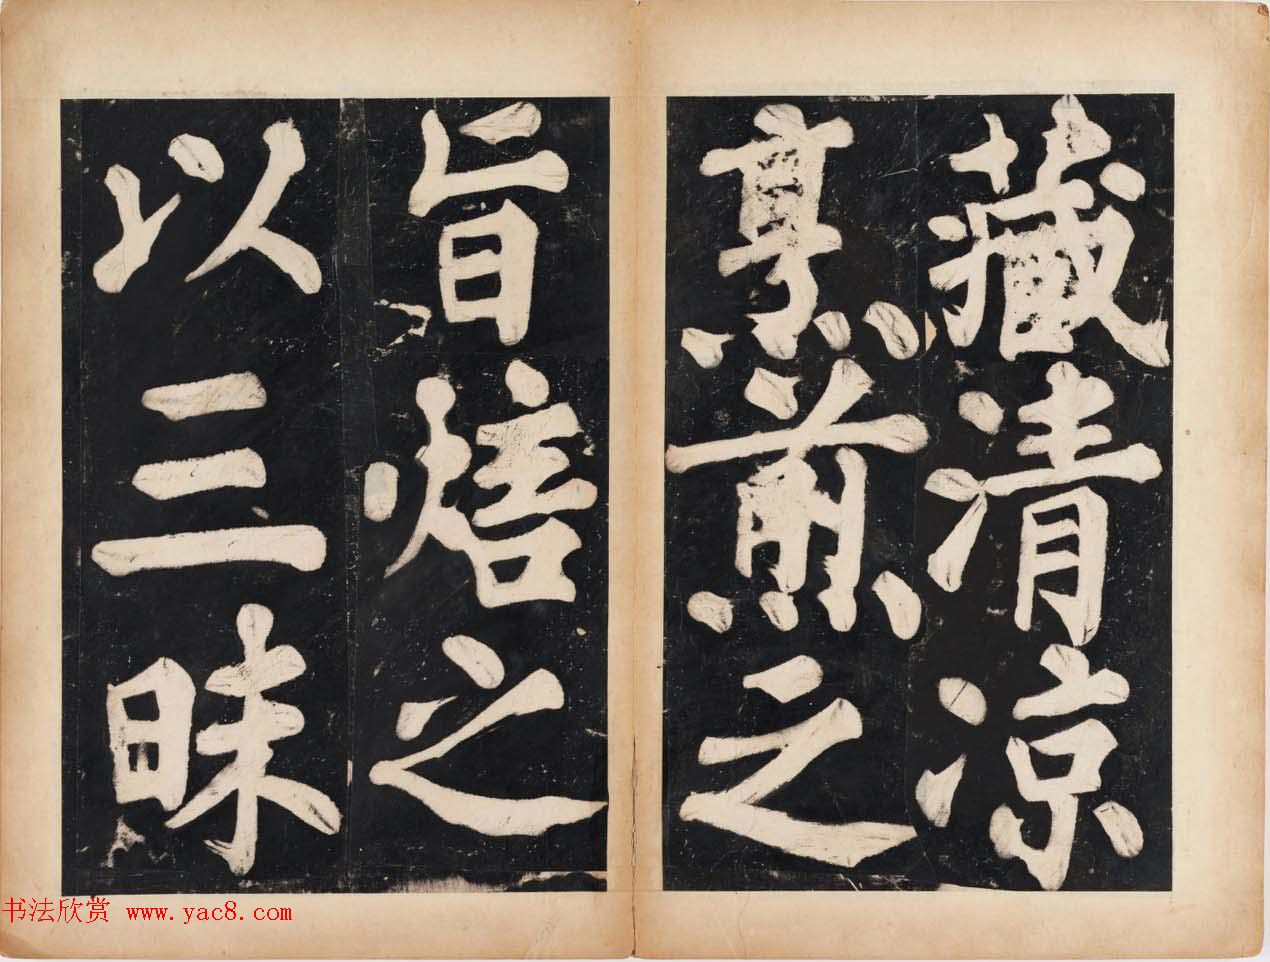 藏清凉
烹煎之
旨焙之
以三昧
书法欣赏 www.yac8.com